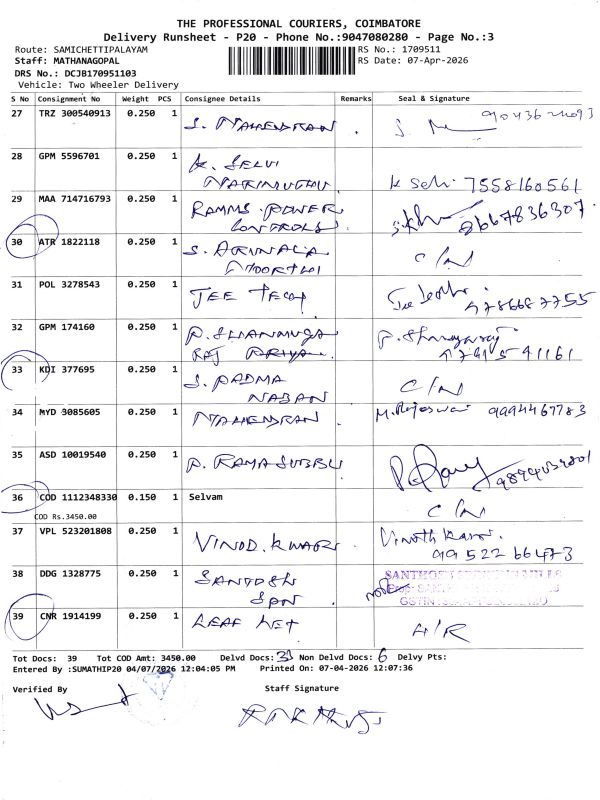 THE PROFESSIONAL COURIERS, COIMBATORE
Delivery Runsheet - P20 - Phone No.:9047080280 - Page No.:3
Route: SAMICHETTIPALAYAM
RS No.: 1709511
Staff: MATHANAGOPAL
RS Date: 07-Apr-2026
DRS No.: DCJB170951103
Vehicle: Two Wheeler Delivery
S No Consignment No Weight PCS Consignee Details Remarks Seal & Signature
27 TRZ 300540913 0.250 1 S. MAHENDRAN
28 GPM 5596701 0.250 1 K. SELVI
7558160561
29 MAA 714716793 0.250 1 RAMMS POWER
CONTROLS
30 ATR 1822118 0.250 1 C/N
31 POL 3278543 0.250 1 JEE
32 GPM 174160 0.250 1 P. SHANMUGA
RAJ PRIYA
33 KDI 377695 0.250 1 S. PADMA C/N
34 MYD 3085605 0.250 1 MAHENDRAN 9994467783
35 ASD 10019540 0.250 1 P. RAMA SUBBU
36 COD 1112348330 0.150 1 Selvam C/N
COD Rs.3450.00
37 VPL 523201808 0.250 1 VINOD. KUMAR
99522 66473
38 DDG 1328775 0.250 1 SANTOSH
39 CNR 1914199 0.250 1 LEAF NET A/R
Tot Docs: 39 Tot COD Amt: 3450.00 Delvd Docs: 33 Non Delvd Docs: 6 Delvy Pts:
Entered By :SUMATHIP20 04/07/2026 12:04:05 PM Printed On: 07-04-2026 12:07:36
Verified By
Staff Signature